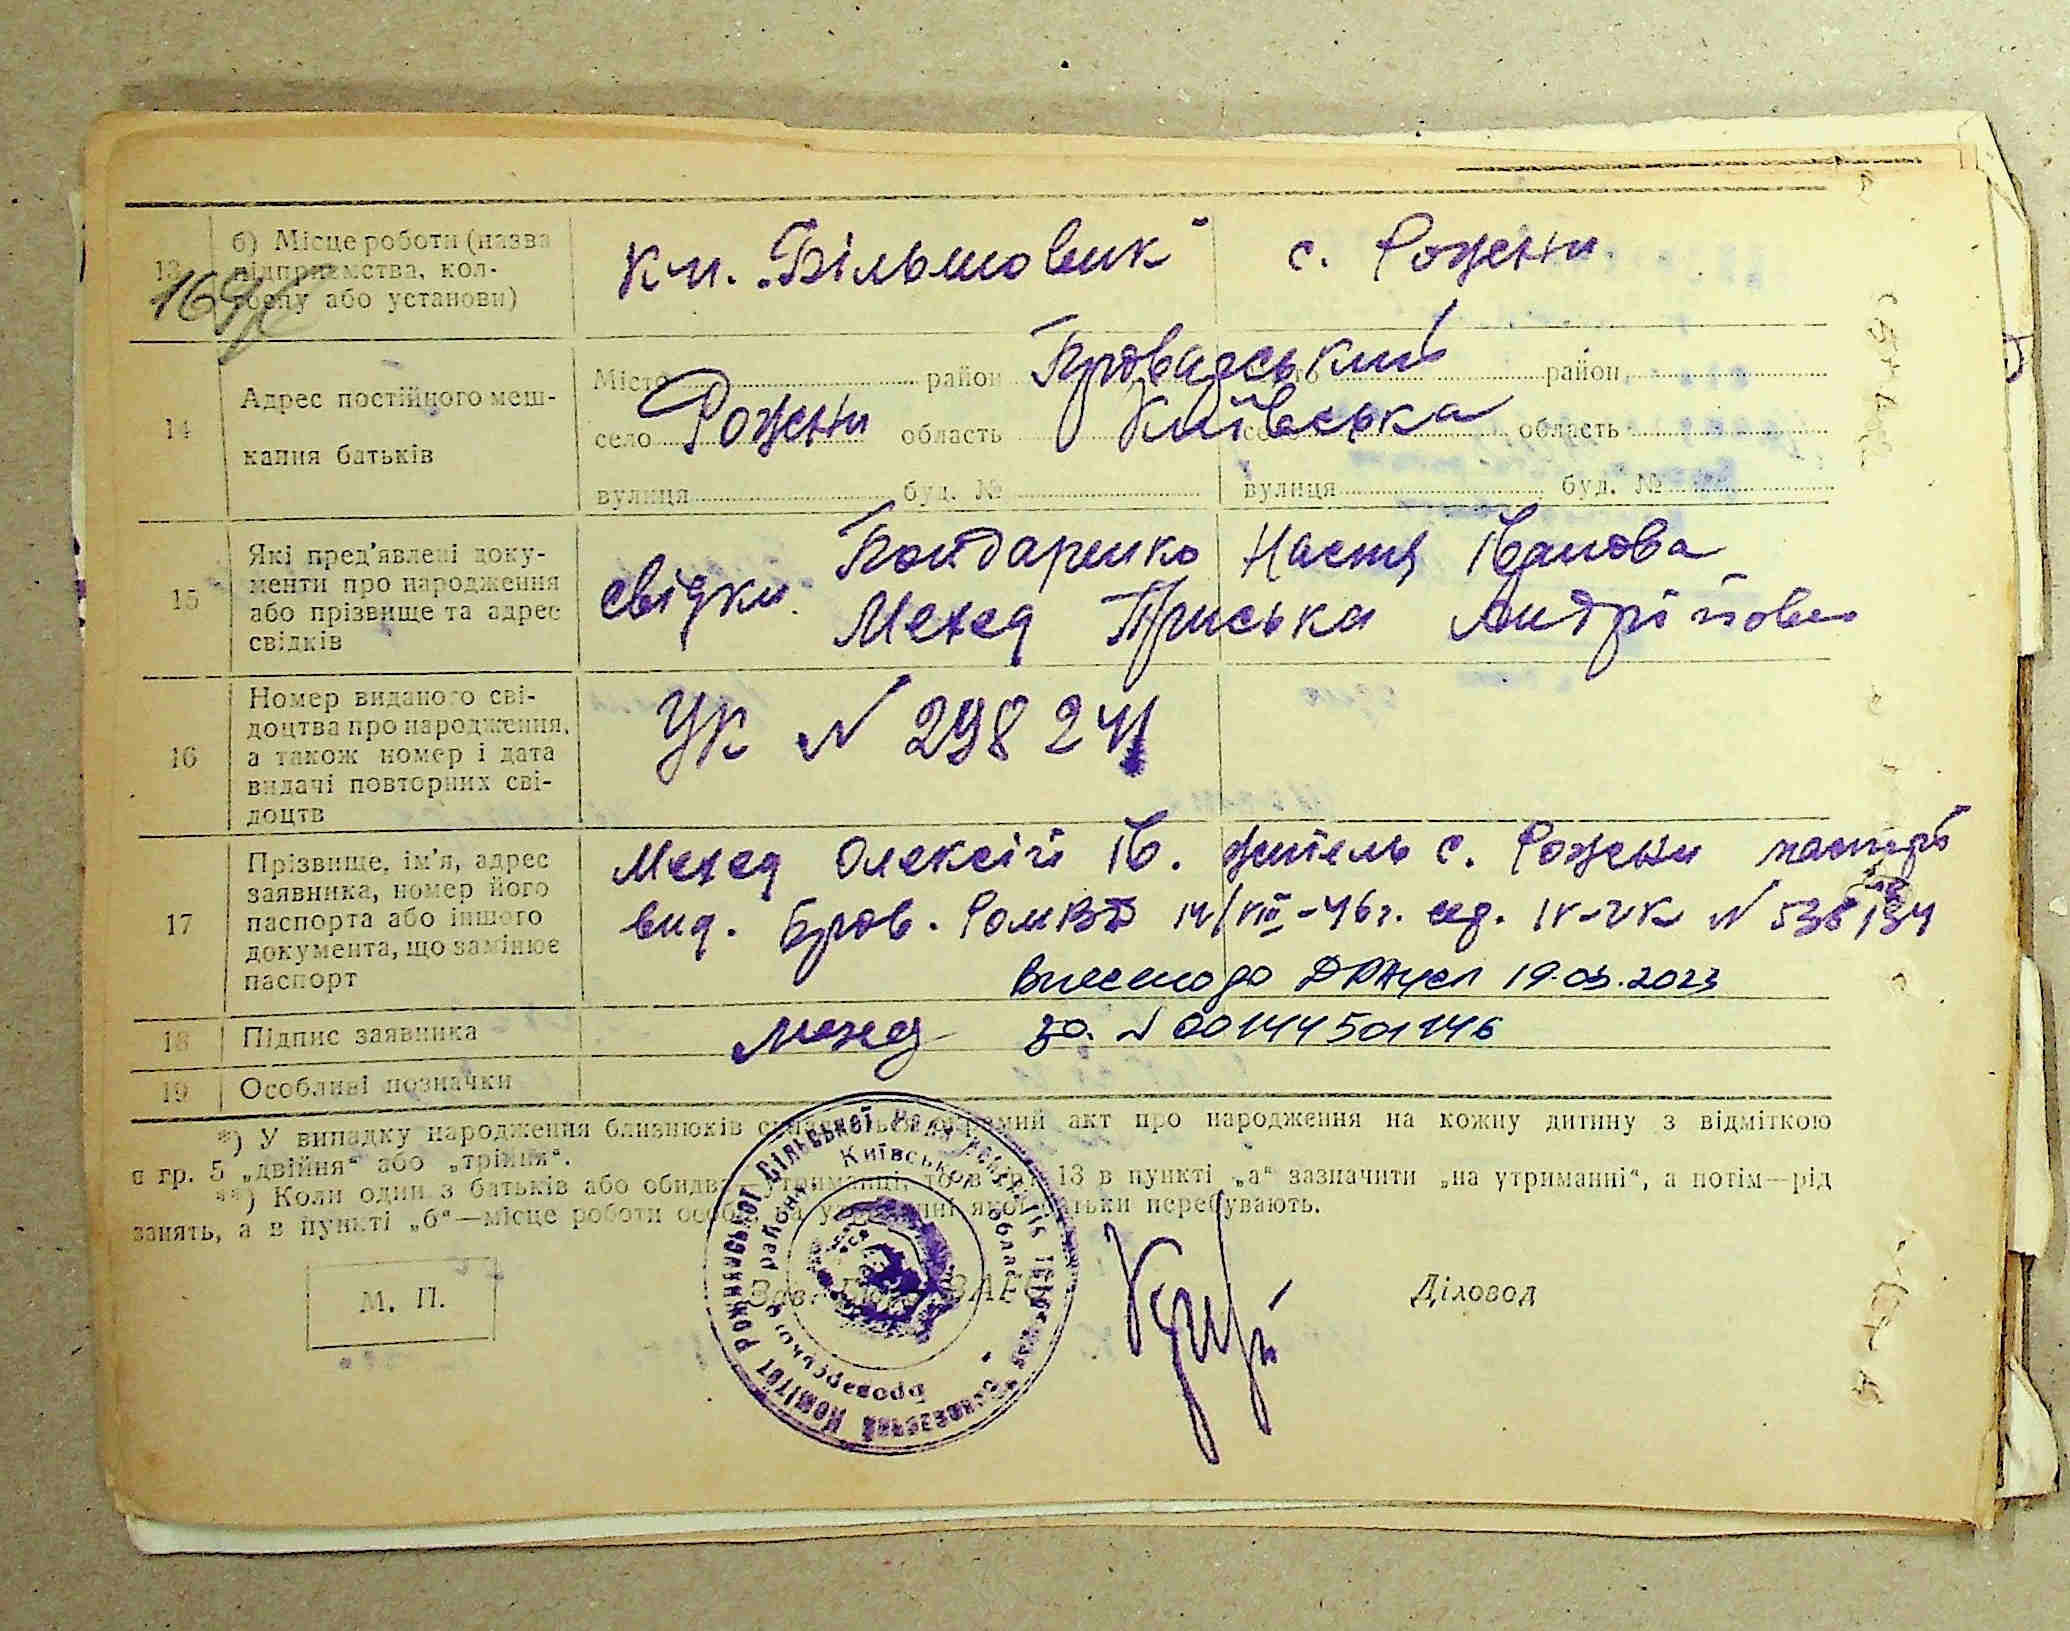 13 б) Місце роботи (назва
підприємства, кол-
госпу або установи)
Кл. „Більшовик" с. Рожни.
14 Адрес постійного меш-
кання батьків
Місто район Броварський район
село Рожни область Київська область
вулиця буд. № вулиця буд. №
15 Які пред'явлені доку-
менти про народження
або прізвище та адрес
свідків
свідки: Бондаренко Настя Іванова
Мехед Приська Андрійовн
16 Номер виданого сві-
доцтва про народження,
а також номер і дата
видачі повторних сві-
доцтв
УК N 298241
17 Прізвище, ім'я, адрес
заявника, номер його
паспорта або іншого
документа, що замінює
паспорт
Мехед Олексій Ів. житель с. Рожни паспорт
вид. Бров. РОМВД 14/VIII-46 г. сер. IV-УК N 538134
Внесено до ДРАЦСГ 19.03.2023
за N 00144501146
18 Підпис заявника Мехед
19 Особливі позначки
*) У випадку народження близнюків складається окремий акт про народження на кожну дитину з відміткою
в гр. 5 „двійня" або „трійня".
**) Коли один з батьків або обидва—утриманці, то в гр. 13 в пункті „а" зазначити „на утриманні", а потім—рід
занять, а в пункті „б"—місце роботи особи, на утриманні якої батьки перебувають.
М. П.
Зав. Бюро ЗАГС
Діловод
Виконавчий Комітет Рожнівської Сільської Ради
Броварського району Київської області